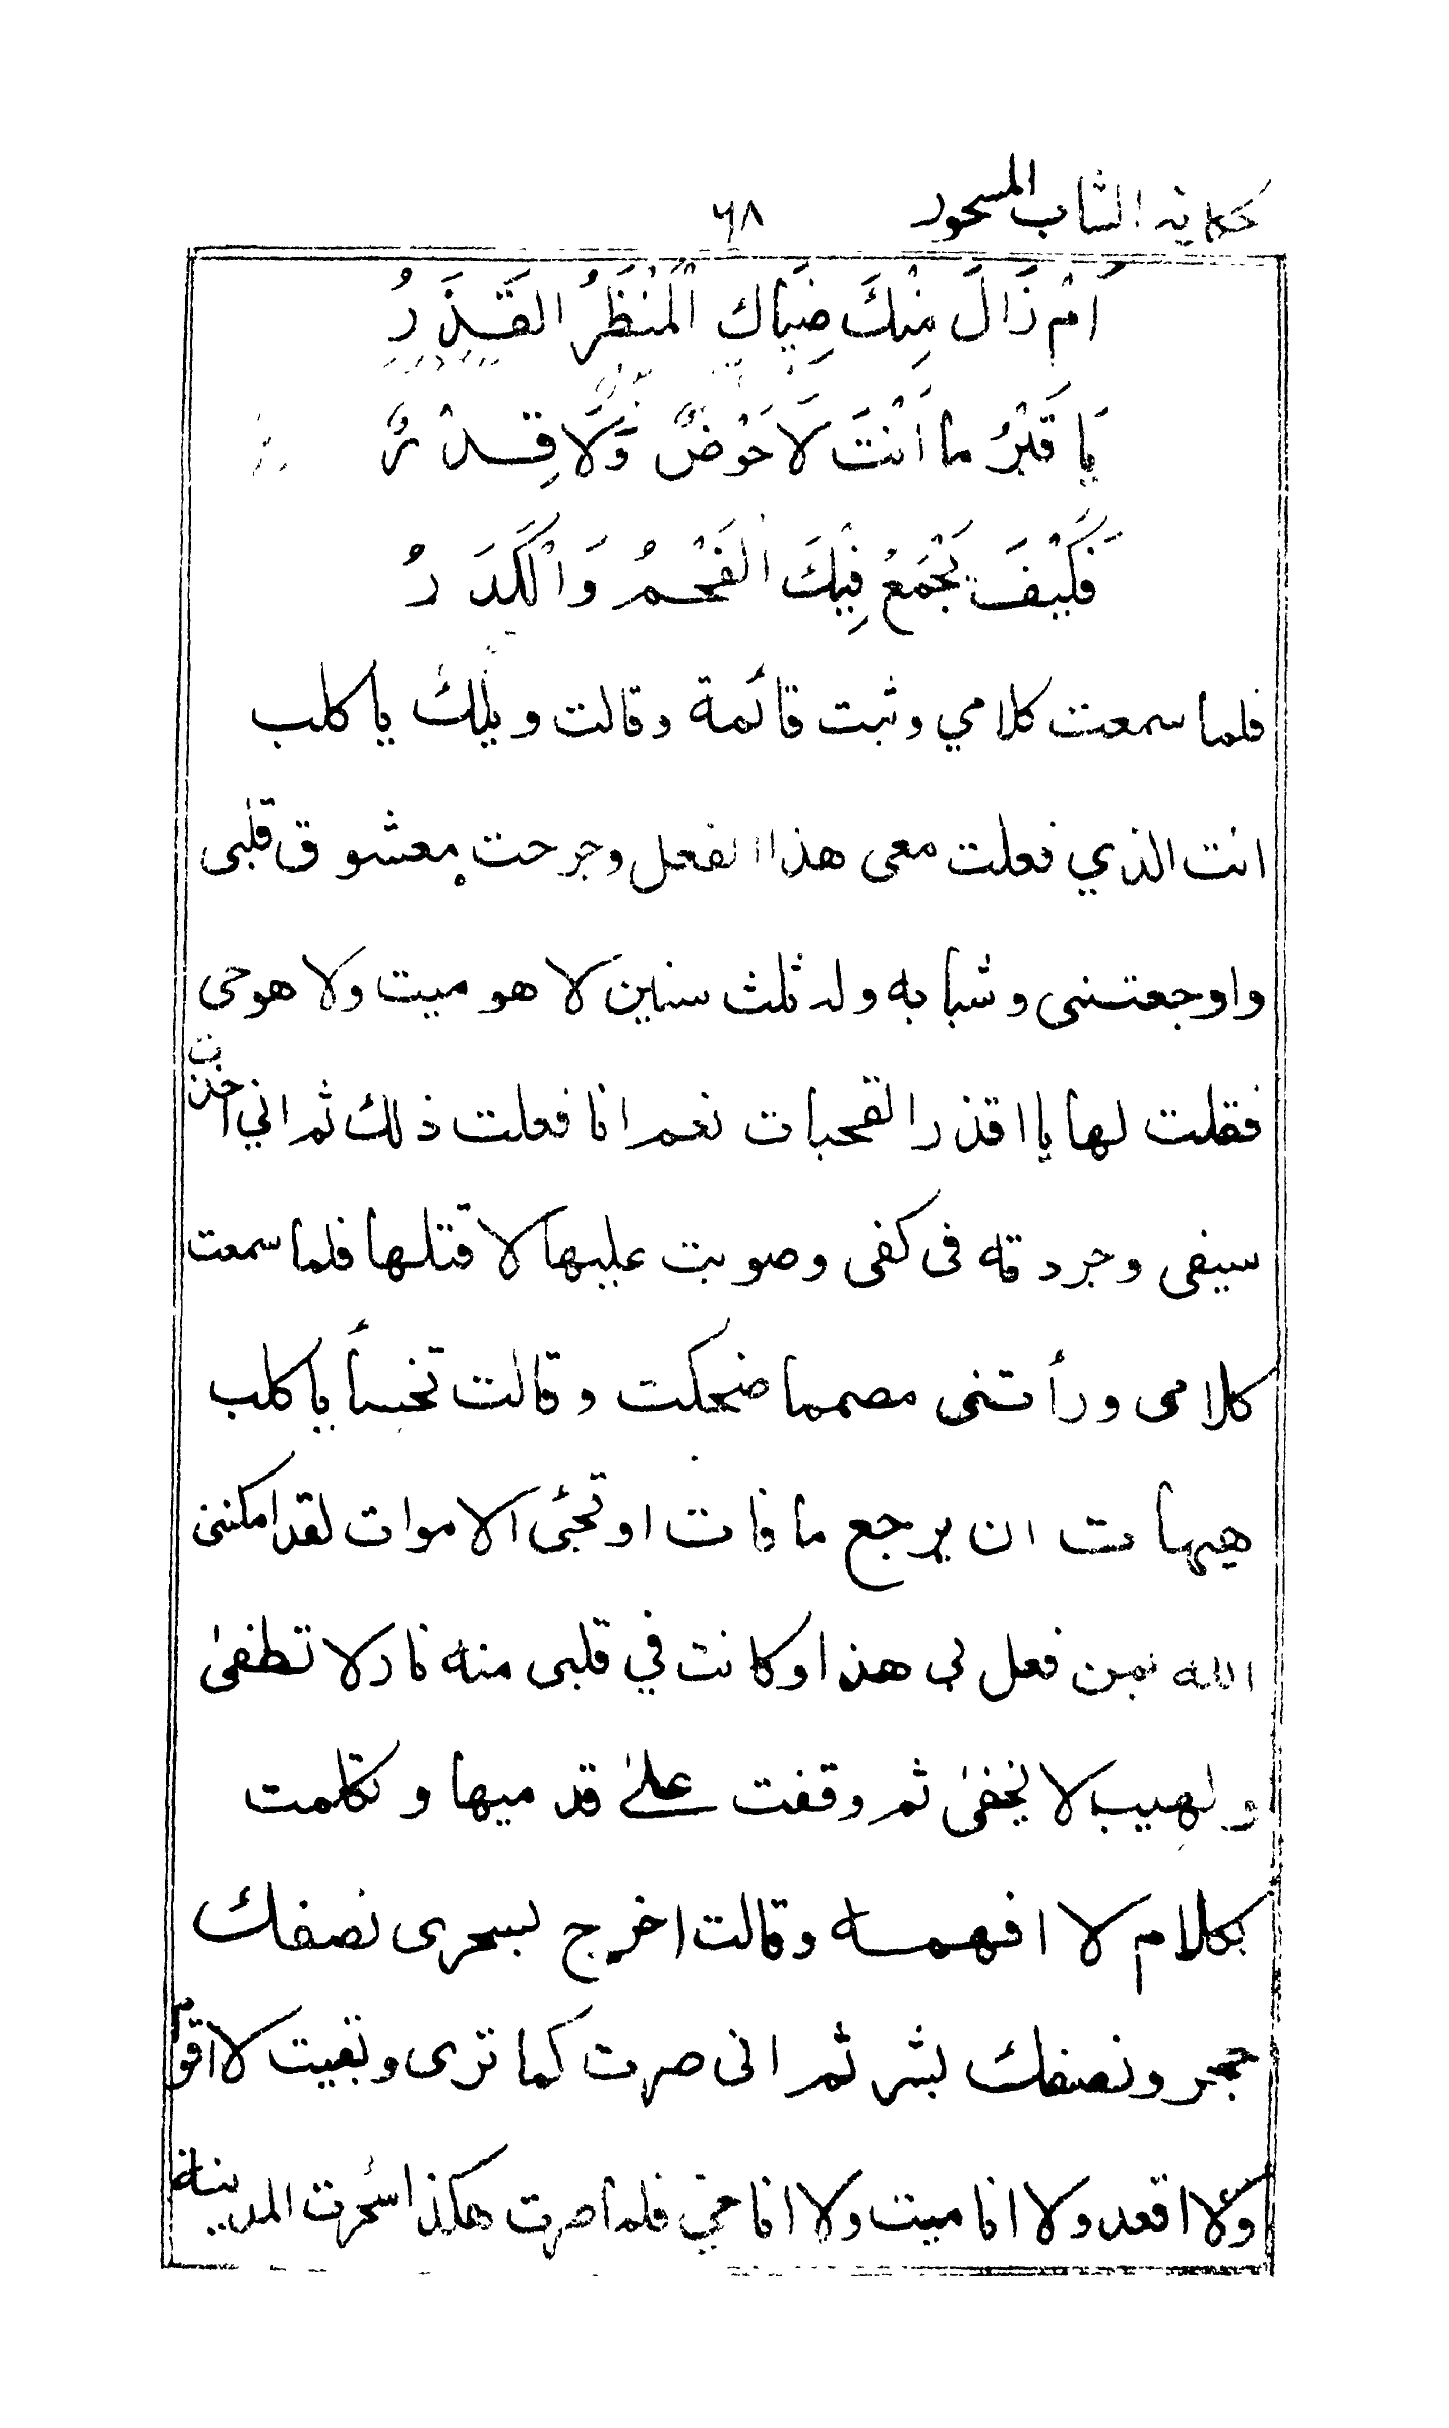 حكاية الشاب المسحور ٦٨
اَمْ زَالَ مِنْكَ ضِيَاكِ الْمَنْظَرُ القَذَرُ
يَا قَبْرُ ما اَنْتَ لَا حَوْضٌ وَلَا قِدْرٌ
فَكَيْفَ يَجْمَعُ فِيْكَ الفَحْمُ وَالْكَدَرُ
فلما سمعت كلامي وثبت قائمة وقالت ويلك يا كلب
انت الذي فعلت معى هذا الفعل وجرحت معشوق قلبى
واوجعتنى وشبابه وله ثلث سنين لا هو ميت ولا هو حى
فقلت لها يا اقذر القحبات نعم انا فعلت ذلك ثم اني اخذت
سيفى وجردته فى كفى وصوبت عليها لا قتلها فلما سمعت
كلامى ورأتنى مصمما ضحكت وقالت تخسأ يا كلب
هيهات ان يرجع ما فات او تحئى الاموات لقد امكننى
الله بمن فعل بى هذا وكانت في قلبى منه نار لا تطفىٰ
ولهيب لا يخفىٰ ثم وقفت علىٰ قدميها وتكلمت
بكلام لا افهمه وقالت اخرج بسحرى نصفك
حجر ونصفك بشر ثم انى صرت كما ترى وبقيت لا اقوم
ولا اقعد ولا انا ميت ولا انا حي فلما صرت هكذا سحرت المدينة